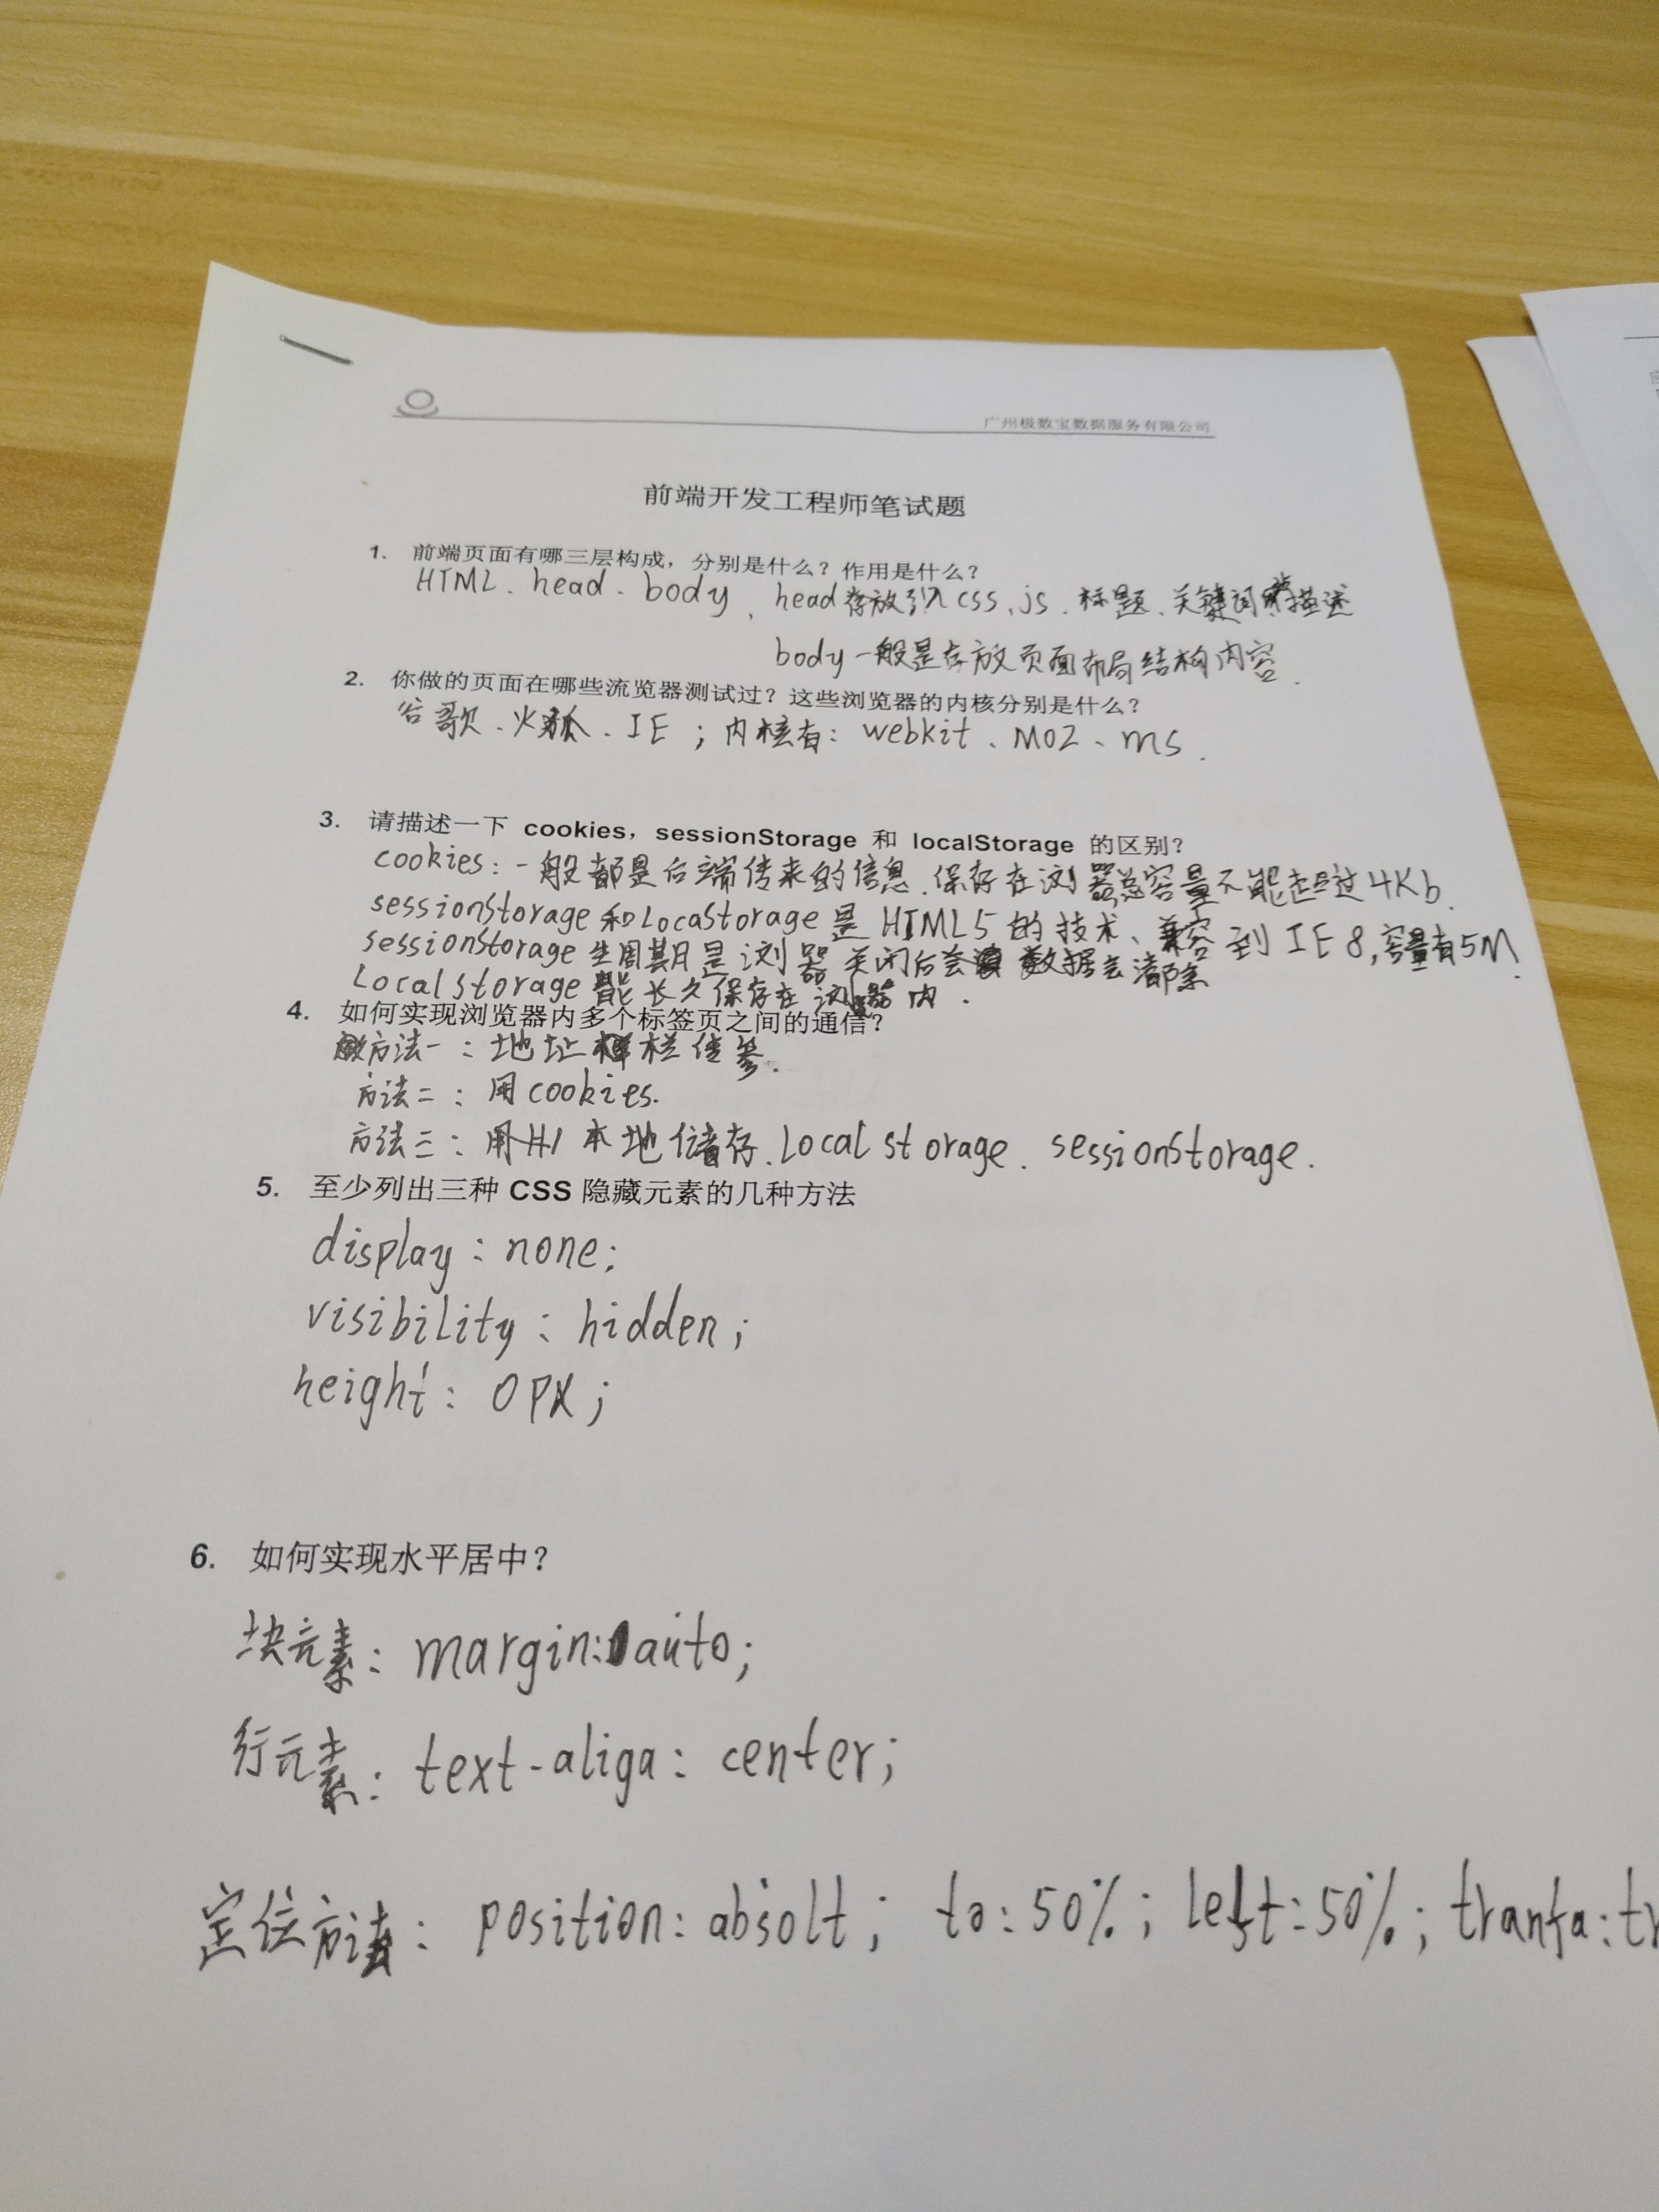 广州极数宝数据服务有限公司
前端开发工程师笔试题
1. 前端页面有哪三层构成，分别是什么？作用是什么？
HTML、head、body、head存放引入css、js、标题、关键词描述
body一般是存放页面布局结构内容.
2. 你做的页面在哪些流览器测试过？这些浏览器的内核分别是什么？
谷歌、火狐、IE；内核有：webkit、MOZ、ms.
3. 请描述一下 cookies，sessionStorage 和 localStorage 的区别？
cookies：一般都是后端传来的信息.保存在浏器总容量不能超过4Kb.
sessionStorage和LocaStorage是HTML5的技术、兼容到IE8,容量有5M.
sessionStorage生周期是浏器关闭后会数据会清除
Localstorage能长久保存在浏览器内.
4. 如何实现浏览器内多个标签页之间的通信？
方法一：地址栏传参.
方法二：用cookies.
方法三：用H1本地储存.Localstorage.sessionStorage.
5. 至少列出三种 CSS 隐藏元素的几种方法
display：none;
visibility：hidden;
height：0px;
6. 如何实现水平居中？
块元素：margin:0auto;
行元素：text-aliga：center;
定位方法：position：absolt; to：50%; left：50%; tranfa：tr